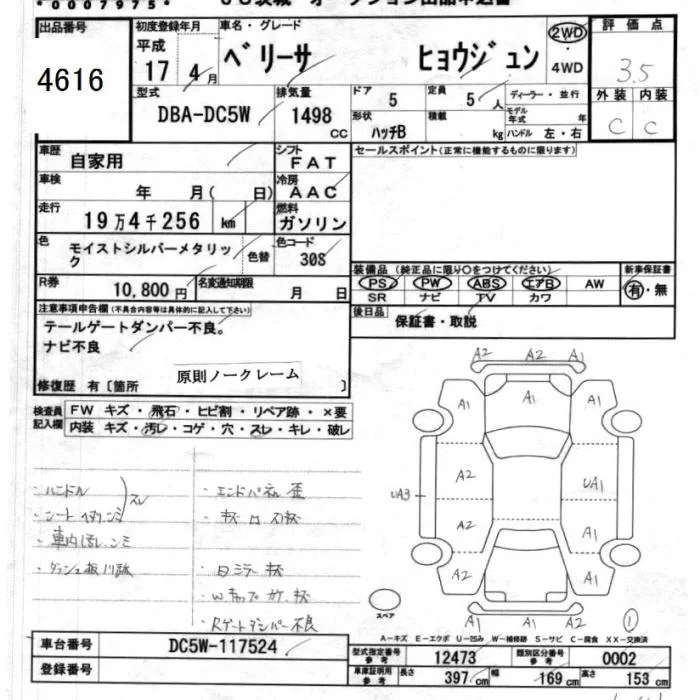 *0007975*
出品番号
4616
初度登録年月
平成
17 4月
車名・グレード
ベリーサ ヒョウジュン
2WD
・
4WD
評価点
3.5
外装 内装
C C
型式
DBA-DC5W
排気量
1498
CC
ドア
5
定員
5人
形状
ハッチB
積載
kg
ディーラー・並行
モデル年式 年
ハンドル 左・右
車歴
自家用
シフト
FAT
車検
年 月( 日)
冷房
AAC
走行
19万4千256 km
燃料
ガソリン
色
モイストシルバーメタリック
色替
色コード
30S
R券
10,800円
名変通知期限
月 日
セールスポイント(正常に機能するものに限ります)
装備品 (純正品に限り○をつけてください)
PS PW ABS エアB AW
SR ナビ TV カワ
新車保証書
有・無
後日品
保証書・取説
注意事項申告欄(不具合内容等は具体的に記入して下さい)
テールゲートダンパー不良。
ナビ不良
原則ノークレーム
修復歴 有〔箇所 〕
検査員記入欄
FW キズ・飛石・ヒビ割・リペア跡・×要
内装 キズ・汚レ・コゲ・穴・スレ・キレ・破レ
・ハンドル
スレ
・シート
・車内汚レ、シミ
・ダッシュ板
・エンドパネル 歪
・Rゲートダンパー不良
A2 A2 A1
A1 A1 A1
A2 UA1
UA3
A2 A1
A2 A1
A2 A1 A1
スペア
1
A-キズ E-エクボ U-凹み W-補修跡 S-サビ C-腐食 XX-交換済
車台番号
DC5W-117524
登録番号
型式指定番号
参考
12473
類別区分番号
参考
0002
車庫証明用
参考
長さ 397cm 幅 169cm 高さ 153cm